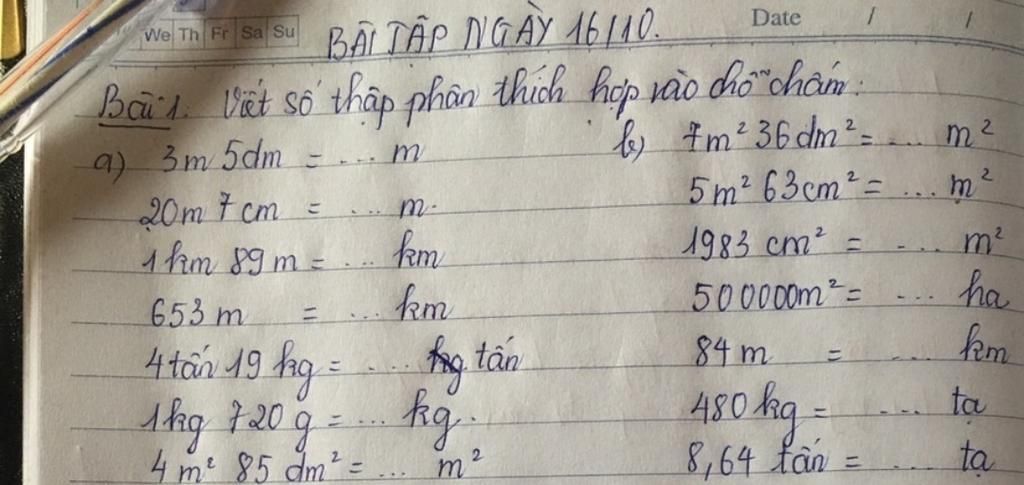 We Th Fr Sa Su
Date / /
BÀI TẬP NGÀY 16/10.
Bài 1. Viết số thập phân thích hợp vào chỗ chấm:
a) 3m 5dm = ... m
20m 7cm = ... m.
1km 89m = ... km
653m = ... km
4tấn 19kg = ... tấn
1kg 720g = ... kg.
4m² 85dm² = ... m²
b) 7m² 36dm² = ... m²
5m² 63cm² = ... m²
1983 cm² = ... m²
500000m² = ... ha
84m = ... km
480kg = ... tạ
8,64 tấn = ... tạ